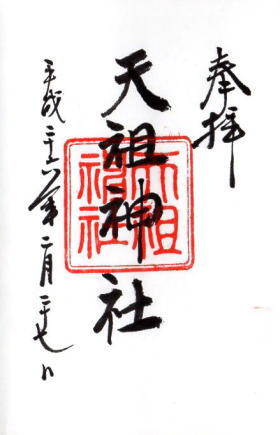 奉拝
天祖神社
天祖神社
平成二十六年二月二十七日